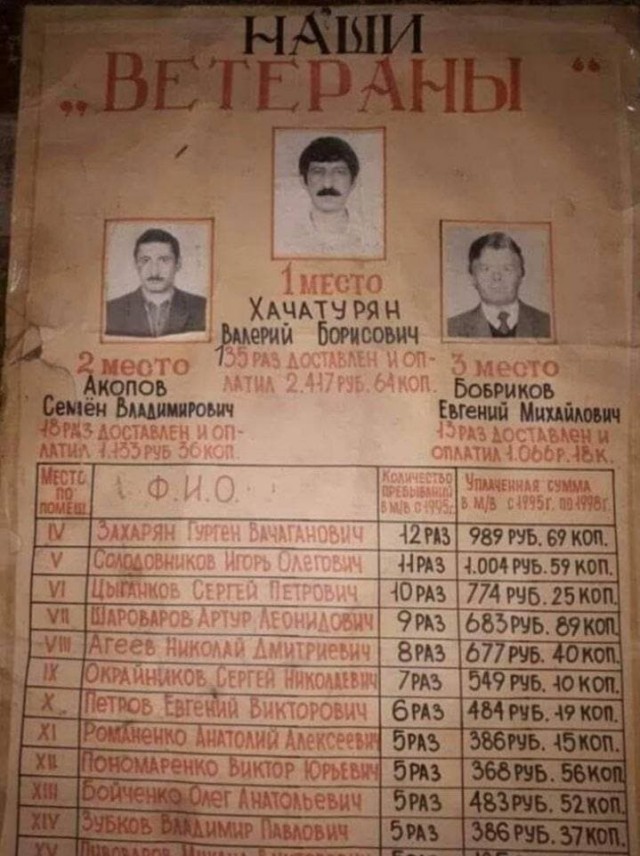 НАШИ
„ВЕТЕРАНЫ“
1 МЕСТО
ХАЧАТУРЯН
ВАЛЕРИЙ БОРИСОВИЧ
135 РАЗ ДОСТАВЛЕН И ОП-
ЛАТИЛ 2.417 РУБ. 64 КОП.
2 МЕСТО
АКОПОВ
СЕМЁН ВЛАДИМИРОВИЧ
18 РАЗ ДОСТАВЛЕН И ОП-
ЛАТИЛ 1.133 РУБ 36 КОП.
3 МЕСТО
БОБРИКОВ
ЕВГЕНИЙ МИХАЙЛОВИЧ
13 РАЗ ДОСТАВЛЕН И
ОПЛАТИЛ 1.066 Р. 18 К.
МЕСТО ПО ПОМЕЩ. Ф.И.О. КОЛИЧЕСТВО ПРЕБЫВАНИЙ В М/В С 1995г. УПЛАЧЕННАЯ СУММА В М/В С 1995г. ПО 1998г.
IV ЗАХАРЯН ГУРГЕН ВАЧАГАНОВИЧ 12 РАЗ 989 РУБ. 69 КОП.
V СОЛОДОВНИКОВ ИГОРЬ ОЛЕГОВИЧ 11 РАЗ 1.004 РУБ. 59 КОП.
VI ЦЫГАНКОВ СЕРГЕЙ ПЕТРОВИЧ 10 РАЗ 774 РУБ. 25 КОП.
VII ШАРОВАРОВ АРТУР ЛЕОНИДОВИЧ 9 РАЗ 683 РУБ. 89 КОП.
VIII АГЕЕВ НИКОЛАЙ ДМИТРИЕВИЧ 8 РАЗ 677 РУБ. 40 КОП.
IX ОКРАЙНИКОВ СЕРГЕЙ НИКОЛАЕВИЧ 7 РАЗ 549 РУБ. 10 КОП.
X ПЕТРОВ ЕВГЕНИЙ ВИКТОРОВИЧ 6 РАЗ 484 РУБ. 19 КОП.
XI РОМАНЕНКО АНАТОЛИЙ АЛЕКСЕЕВИЧ 5 РАЗ 386 РУБ. 15 КОП.
XII ПОНОМАРЕНКО ВИКТОР ЮРЬЕВИЧ 5 РАЗ 368 РУБ. 56 КОП
XIII БОЙЧЕНКО ОЛЕГ АНАТОЛЬЕВИЧ 5 РАЗ 483 РУБ. 52 КОП.
XIV ЗУБКОВ ВЛАДИМИР ПАВЛОВИЧ 5 РАЗ 386 РУБ. 37 КОП.
XV